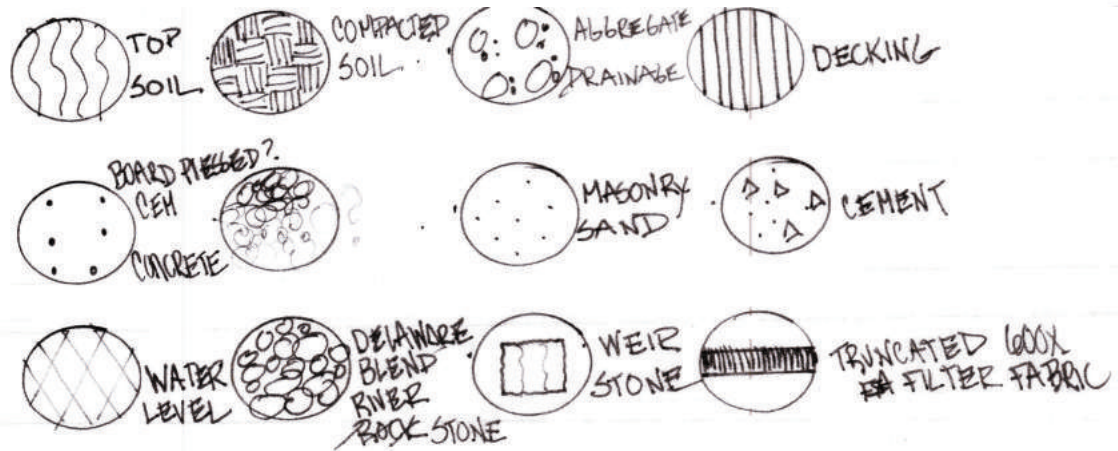 TOP
SOIL
COMPACTED
SOIL
AGGREGATE
DRAINAGE
DECKING
BOARD PLESSED?
CEM
CONCRETE
?
MASONRY
SAND
CEMENT
WATER
LEVEL
DELAWARE
BLEND
RIVER
STONE
WEIR
STONE
TRUNCATED 600X
FILTER FABRIC